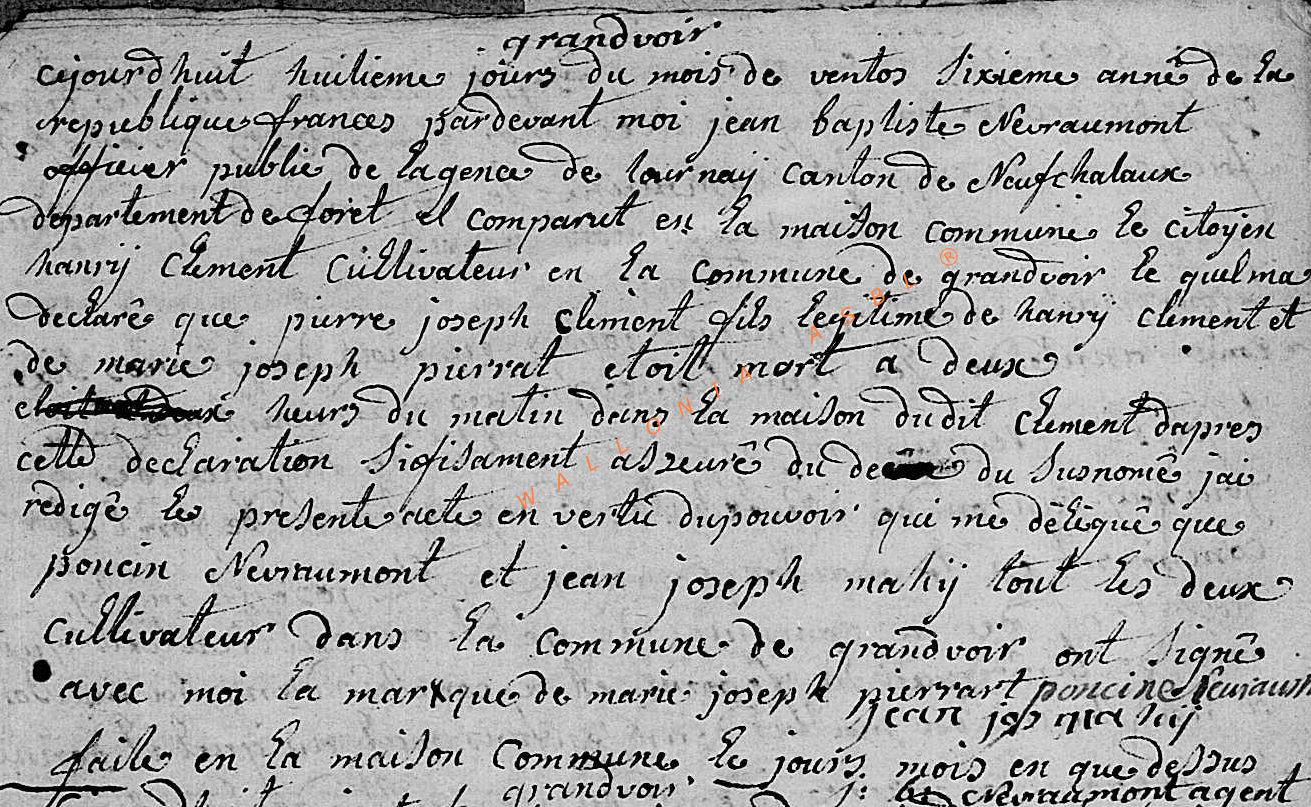 grandvoir
cejourdhuit huitieme jours du mois de ventos sixieme anné de la
republique frances pardevant moi jean baptiste Nevraumont
officier public de lagence de tournaij canton de Neufchataux
departement de foret et comparut en la maison commune le citoyen
hanrij Clement Cultivateur en la commune de grandvoir le quel ma
declarê que pierre joseph Clement fils legitime de hanrij clement et
de marie joseph pierrat etoit mort a deux
heurs du matin dans la maison dudit Clement dapres
cette declaration sifisament aszeurê du du susnomê jai
rêdigê le presente acte en vertu dupouvoir qui me dèliquê que
poncin Nevraumont et jean joseph mahij tout les deux
Cultivateur dans la commune de grandvoir ont signê
avec moi la marque de marie joseph pierrart poncine
jean jos mahij
faite en la maison Commune le jours mois en que dessus
grandvoir j: bt Nevraumont agent
WALLONIA ASBL ®